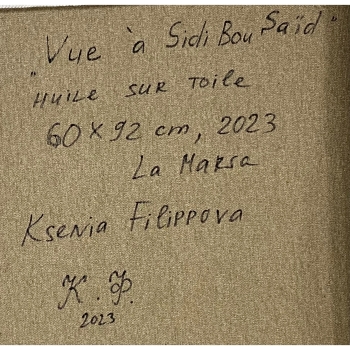 "Vue à Sidi Bou Saïd"
Huile sur toile
60 x 92 cm, 2023
La Marsa
Ksenia Filippova
К. Ф.
2023